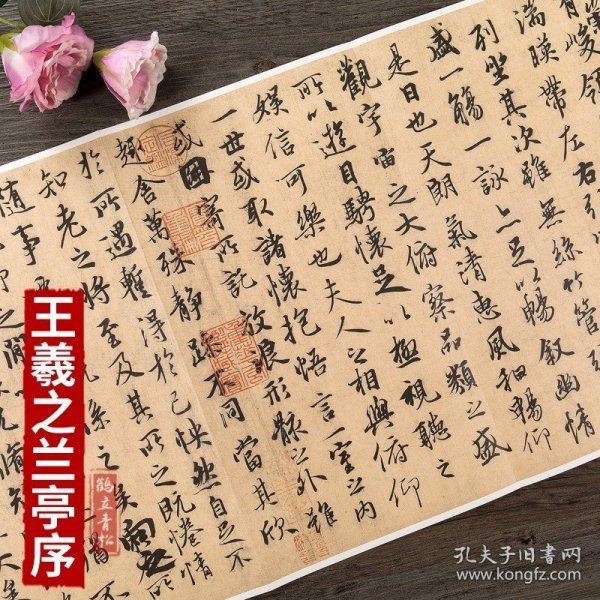 崇山
有峻領
湍暎帶左右引
列坐其次雖無絲竹管
盛一觴一詠亦足以暢叙幽情
是日也天朗氣清惠風和暢仰
觀宇宙之大俯察品類之盛
所以遊目騁懷足以極視聽之
娛信可樂也夫人之相與俯仰
一世或取諸懷抱悟言一室之內
或因寄所託放浪形骸之外雖
趣舍萬殊靜躁不同當其欣
於所遇暫得於己怏然自足不
知老之將至及其所之既惓情
隨事係之矣向之所
仰之閒不
王羲之兰亭序
鹤立青松
孔夫子旧书网
www.kongfz.com